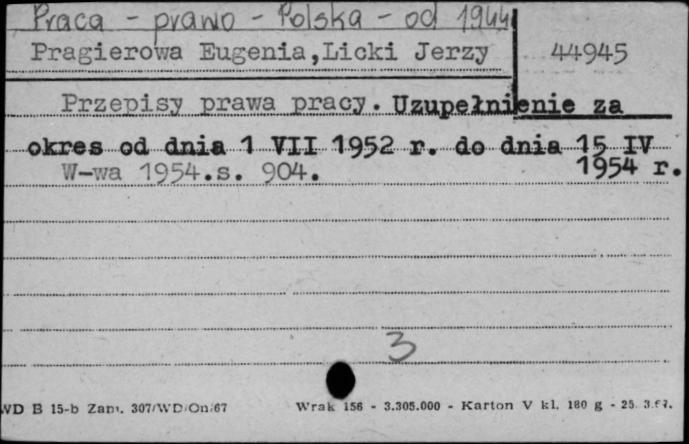 Praca - prawo - Polska - od 1944
Pragierowa Eugenia,Licki Jerzy 44945
Przepisy prawa pracy. Uzupełnienie za
okres od dnia 1 VII 1952 r. do dnia 15 IV
W-wa 1954.s. 904. 1954 r.
3
WD B 15-b Zam. 307/WD/On/67 Wrak 156 - 3.305.000 - Karton V kl. 180 g - 25. 3.67.